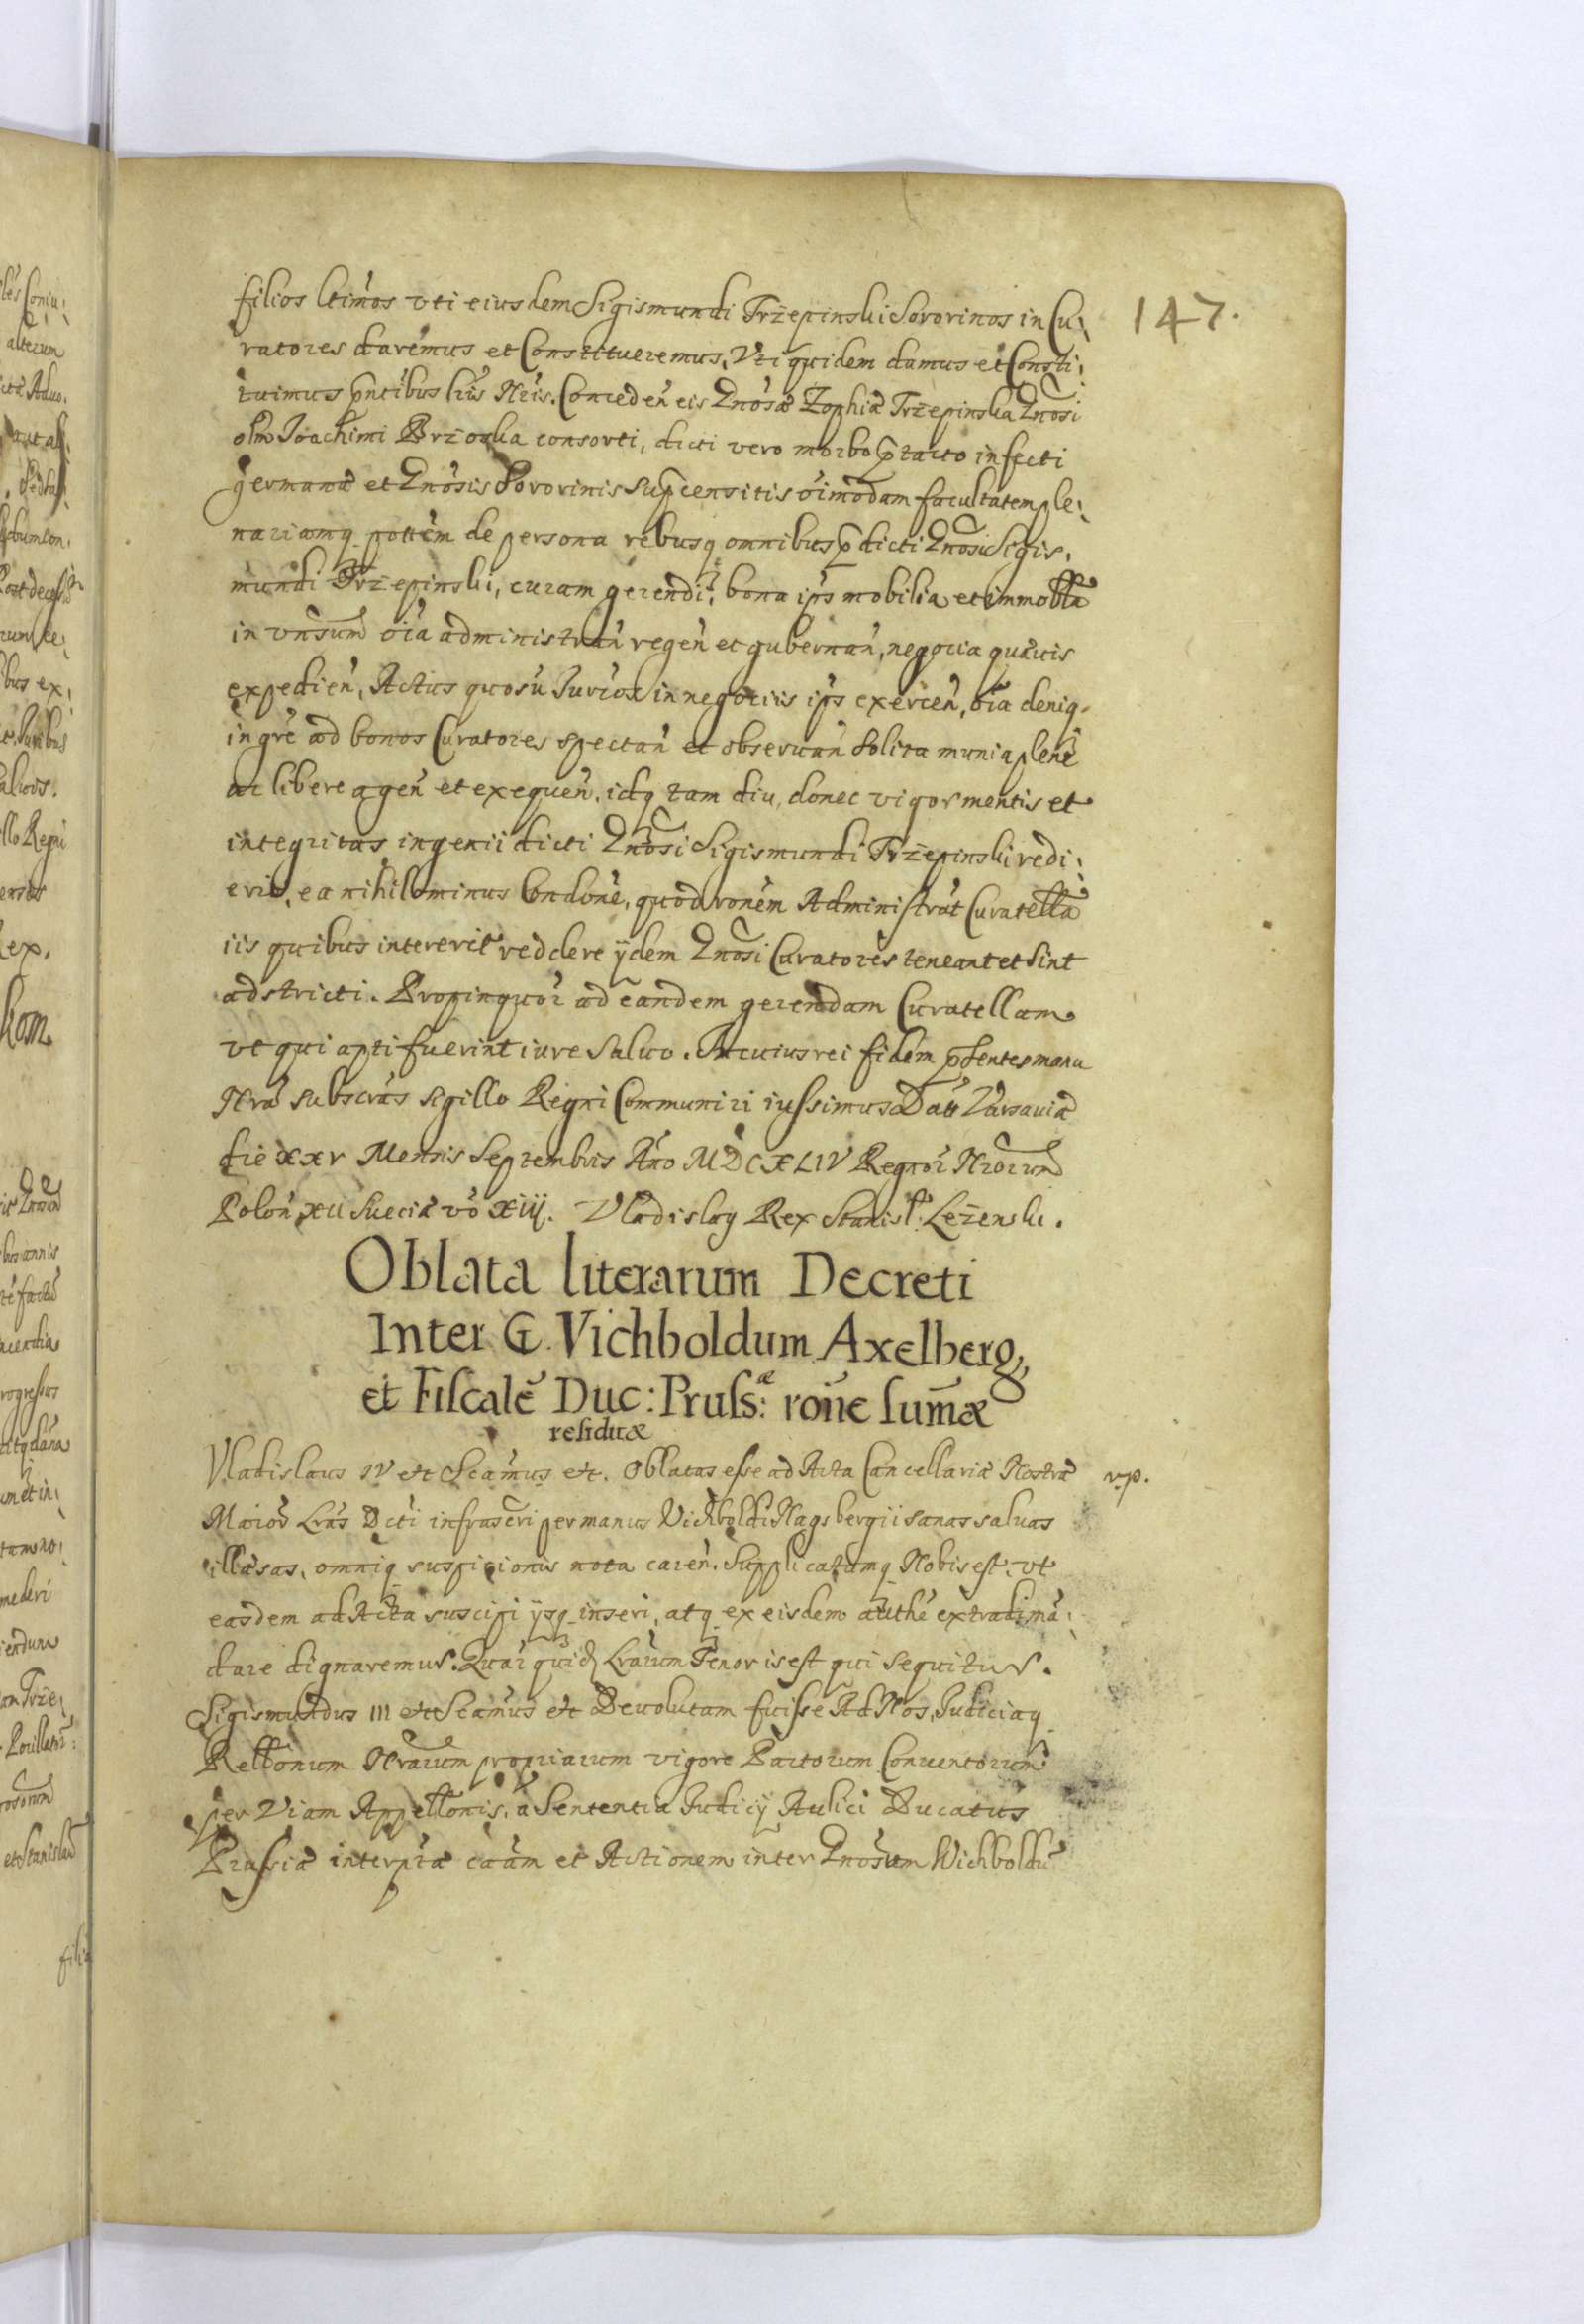 147.
filios ltimos vti eiusdem Sigismundi Trzepinski Sororinos in Cu:
ratores daremus et Constitueremus, Vti quidem damus et Consti:
tuimus pntibus lris Nris. Conceden eis Gnosæ Zophiæ Trzepinska Gnosi
olim Joachimi Brzoska consorti, dicti vero morbo ptacto infecti
germanæ et Gnosis Sororinis supcensitis oimodam facultatem ple:
nariamq pottem de persona rebusq omnibus pdicti Gnosi Sigis,
mundi Trzepinski, curam gerendi, bona ips mobilia et immobla
in vnsum oia administran regen et gubernan, negocia quævis
expedien, Actus quosu Jurios in negociis ips exercen, oia deniq
in gre ad bonos Curatores spectan et observan solita munia plene
ac libere agen et exequen, idq tam diu, donec vigor mentis et
integritas ingenii dicti Gnosi Sigismundi Trzepinski redi:
erit, ea nihilominus Condone, quod ronem Administrat Curatellæ
iis quibus intererit reddere ydem Gnosi Curatores teneant et sint
adstricti. Propinquor ad eandem gerendam Curatellam
vt qui apti fuerint iure salvo. In cuius rei fidem psentes manu
Nra subscras sigillo Regni Communiri iussimus Dat Varsaviæ
die xxv Mensis Septembris Ano MDCXLIV Regnor Nrorum
Polon XII Sueciæ vo XIII. Vladislaq Rex Stanisl: Lezenski.
Oblata literarum Decreti
Inter G. Vichboldum Axelberg,
et Fiscale Duc: Pruss:æ rone sumæ
residuæ
Vladislaus IV etc Scamus etc. Oblatas esse ad Acta Cancellariæ Nostræ
v.p.
Maior Lras Dcti infrascri per manus Vichboldi Hagsbergii sanas salvas
illæsas, omniq suspicionis nota caren. Supplicatumq Nobis est, vt
easdem ad Acta suscipi ysq inseri, atq ex eisdem authe extradi ma:
dare dignaremur. Quar quid Lrarum Tenor is est qui sequitur.
Sigismundus III etc Scamus etc Devolutam fuisse Ad Nos, Judiciaq
Rellonum Nrarum propriarum vigore Pactorum Conventorum
per Viam Appellonis, a Sententia Judicij Aulici Ducatus
Prussiæ interptæ caam et Actionem inter Gnosum Wichboldu